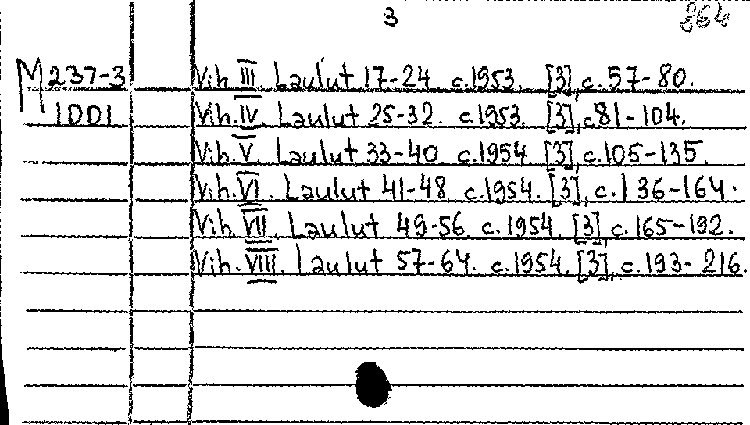 3 864
M237-3 Vih. III. Laulut 17-24. c.1953. [3], c.57-80.
1001 Vih. IV. Laulut 25-32. c.1953. [3], c.81-104.
Vih. V. Laulut 33-40. c.1954. [3], c.105-135.
Vih. VI. Laulut 41-48. c.1954. [3], c.136-164.
Vih. VII. Laulut 49-56. c.1954. [3], c.165-192.
Vih. VIII. Laulut 57-64. c.1954. [3], c.193-216.